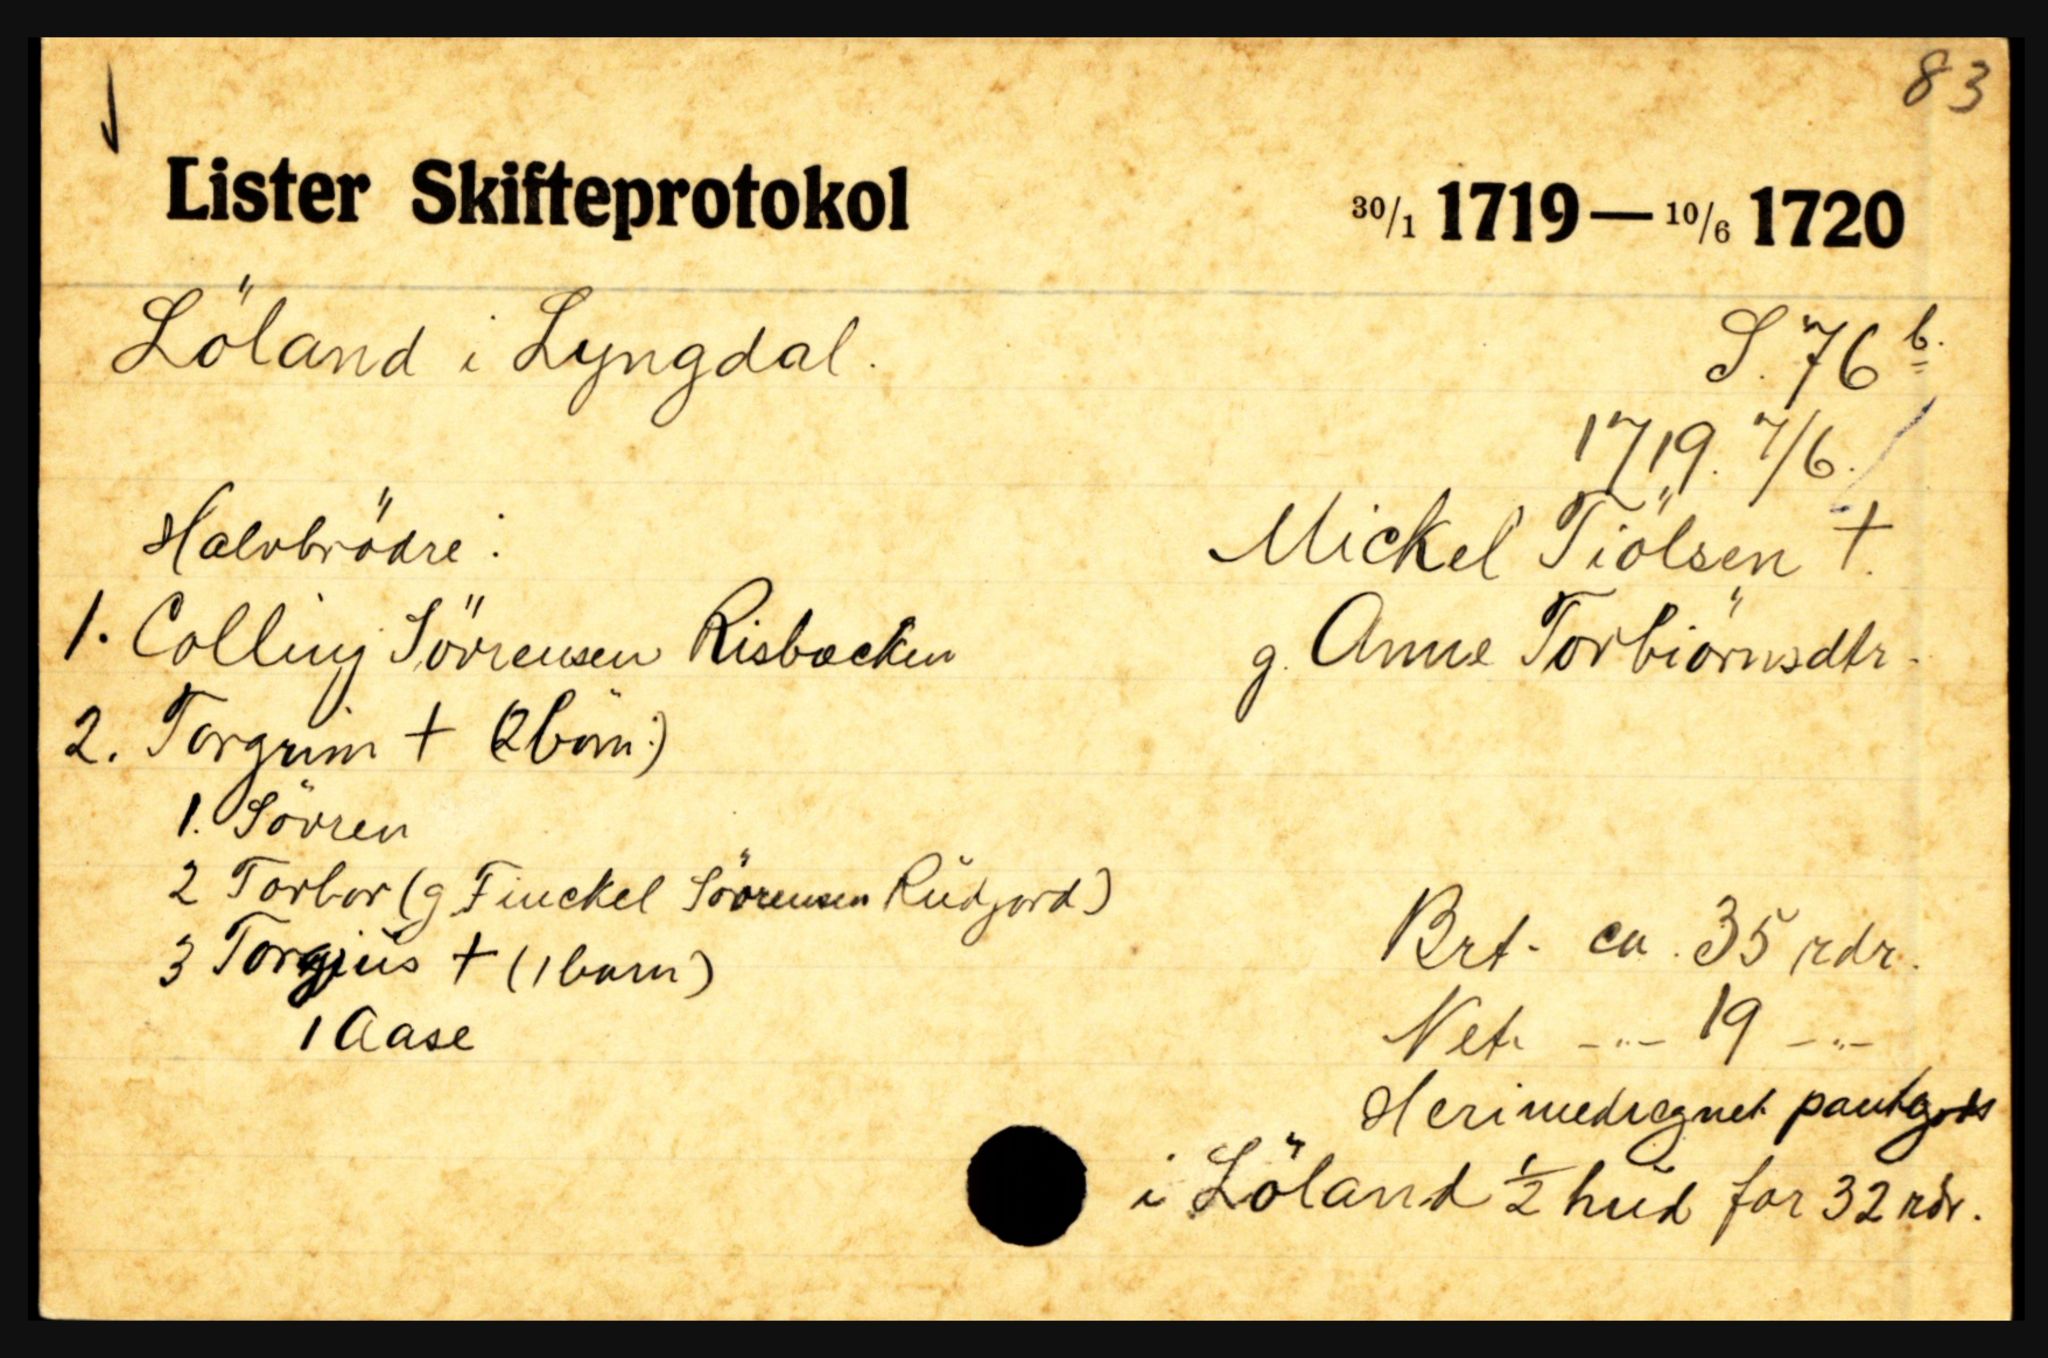 83
Lister Skifteprotokol 30/1 1719 — 10/6 1720
Löland i Lyngdal.
S. 76 b.
1719. 7/6.
Halvbrödre:
Mickel Tiölsen †.
1. Colling Sörrensen Risbæcken
g. Anne Torbiörnsdtr.
2. Torgrim † (2 börn:)
1. Sövren
2 Torbor (g. Finckel Sövrensen Rüdjord)
3 Torgjüs † (1 barn)
1 Aase
Brt. ca. 35 rdr.
Net. -"- 19 -"-
Heri medregnet pantgods
i Löland 1/2 hud for 32 rdr.